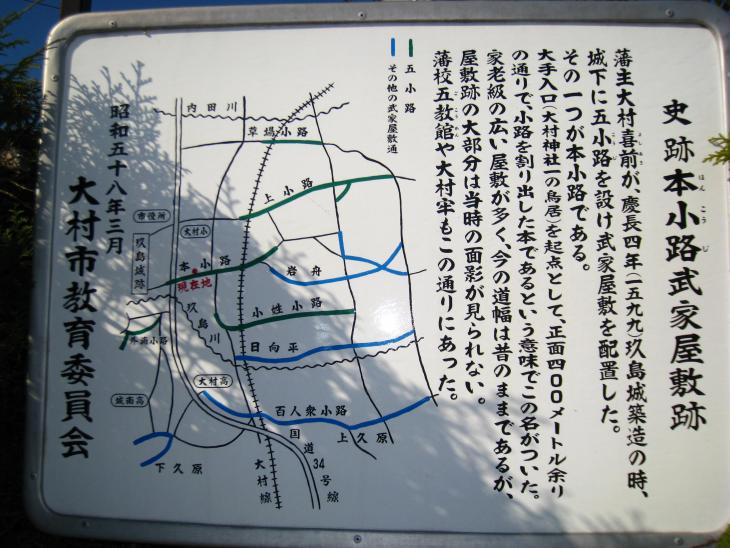 史跡本小路武家屋敷跡
ほんこうじ
藩主大村喜前が、慶長四年(一五九九)玖島城築造の時、
よしあき
城下に五小路を設け武家屋敷を配置した。
こうじ
その一つが本小路である。
大手入口(大村神社一の鳥居)を起点として、正面四〇〇メートル余り
の通りで、小路を割り出した本であるという意味でこの名がついた。
家老級の広い屋敷が多く、今の道幅は昔のままであるが、
屋敷跡の大部分は当時の面影が見られない。
藩校五教館や大村牢もこの通りにあった。
ごこうかん
五小路
その他の武家屋敷通
内田川
草場小路
上小路
市役所
大村小
玖島城跡
本小路
現在地
岩舟
玖島川
小性小路
外浦小路
日向平
大村高
城南高
百人衆小路
上久原
下久原
国道34号線
大村線
昭和五十八年三月
大村市教育委員会